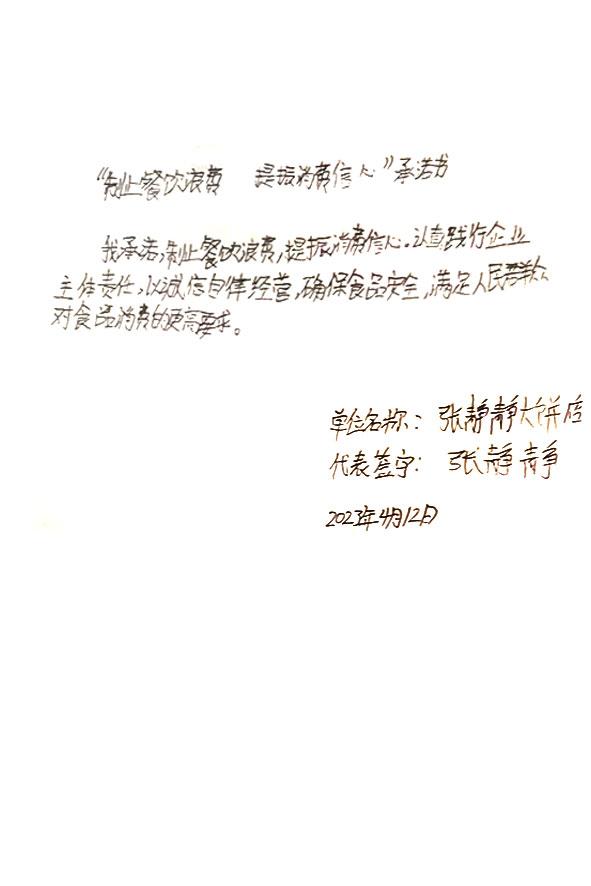 “制止餐饮浪费 提振消费信心”承诺书
我承诺,制止餐饮浪费,提振消费信心.认真践行企业
主体责任,以诚信自律经营,确保食品安全,满足人民群众
对食品消费的更高要求。
单位名称：张静静大饼店
代表签字：张静静
2023年4月12日